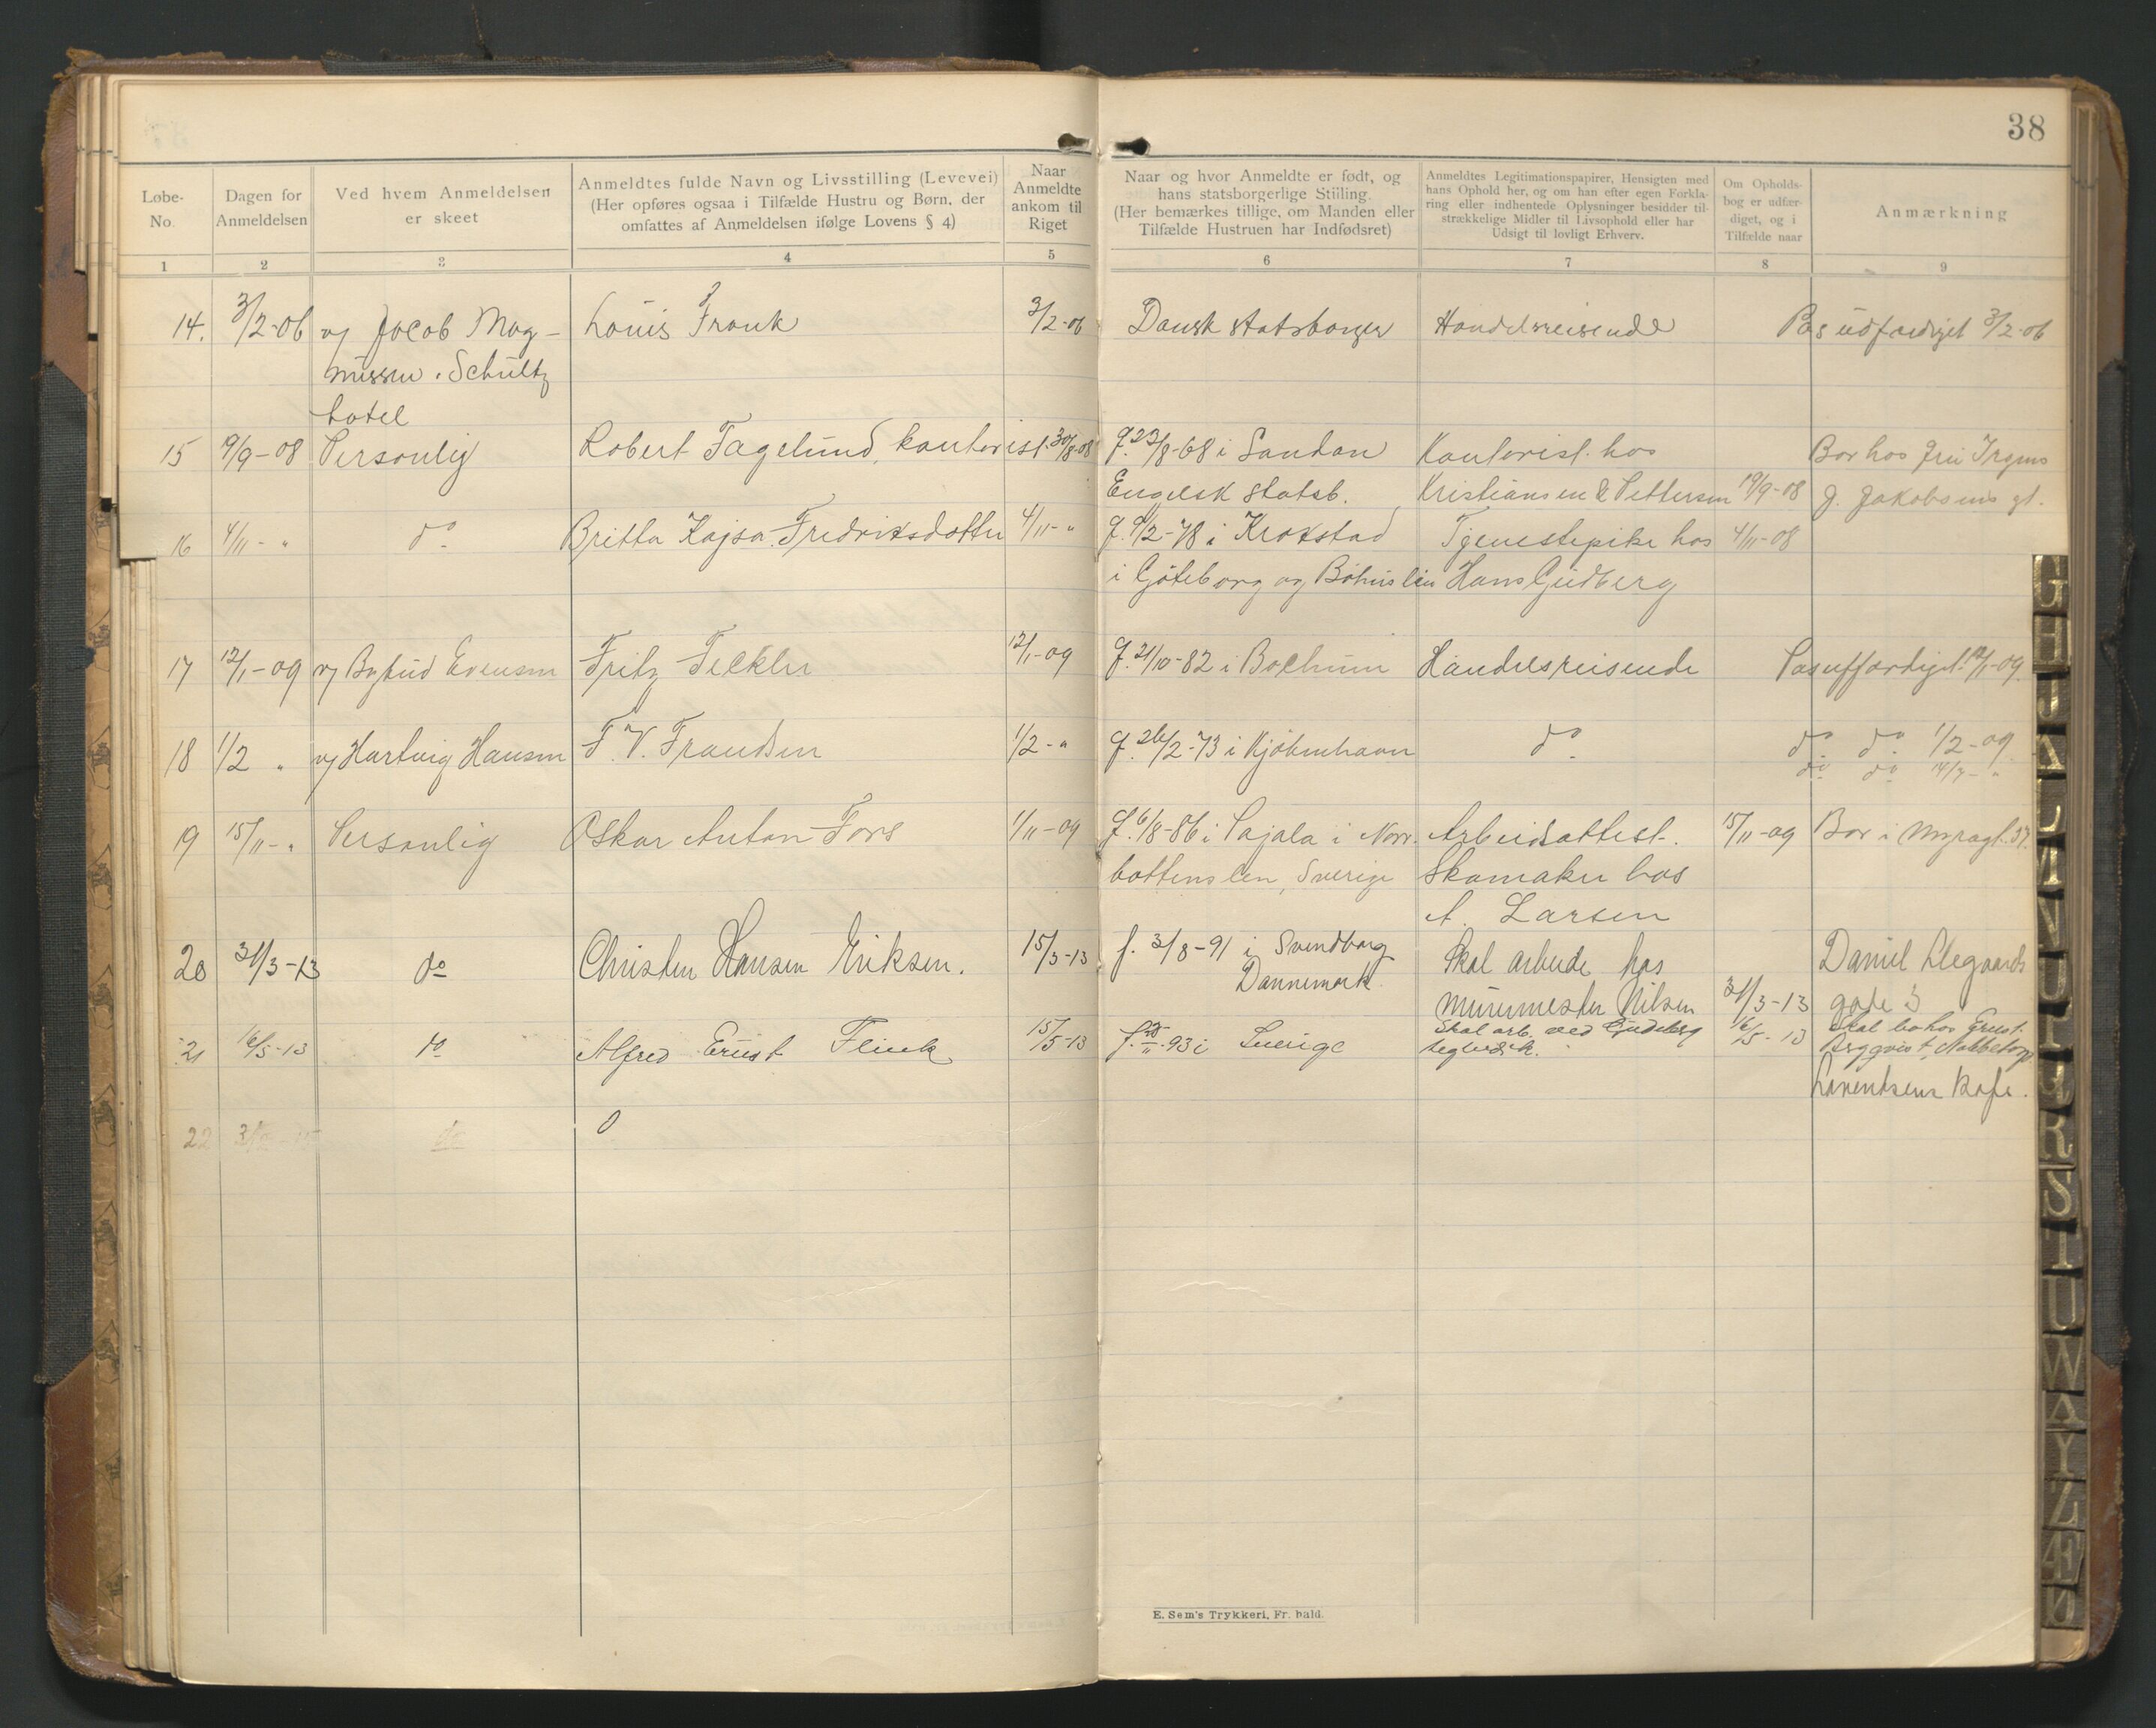 38
Løbe-No.
Dagen for Anmeldelsen
Ved hvem Anmeldelsen er skeet
Anmeldtes fulde Navn og Livsstilling (Levevei)
(Her opføres ogsaa i Tilfælde Hustru og Børn, der
omfattes af Anmeldelsen ifølge Lovens § 4)
Naar Anmeldte ankom til Riget
Naar og hvor Anmeldte er født, og
hans statsborgerlige Stiiling.
(Her bemærkes tillige, om Manden eller
Tilfælde Hustruen har Indfødsret)
Anmeldtes Legitimationspapirer, Hensigten med
hans Ophold her, og om han efter egen Forkla-
ring eller indhentede Oplysninger besidder til-
strækkelige Midler til Livsophold eller har
Udsigt til lovligt Erhverv.
Om Opholds-
bog er udfær-
diget, og i
Tilfælde naar
Anmærkning
1 2 3 4 5 6 7 8 9
14. 3/2-06 v/ Jacob Mag- Louis Frank 3/2-06 Dansk statsborger Handelsreisende Pas udfærdiget 3/2-06
nussen. Schultz
hotel
15 19/9-08 Personlig Robert Fagelund, kontorist. 30/8-08 f. 23/8-68 i Kontorist hos Bor hos
Engelsk statsb. Kristiansen & Pettersen 19/9-08 J. Jakobsens gt.
16 4/11- " do Britta Kajsa Fredriksdotter 4/11- " f. 9/2-78 i Krokstad Tjenestepike hos 4/11-08
i Göteborg og Bohus län Hans Gudberg
17 12/1-09 v/ Bybud Evensen Fritz Feckler 12/1-09 f. 21/10-82 i Bochum Handelsreisende Pas uffærdiget 12/1-09.
18 1/2 " v/ Hartvig Hansen F. V. Frandsen 1/2- " f. 26/2-73 i Kjöbenhavn do do do 1/2-09
do do 14/7- "
19 15/11- " Personlig Oskar Anton Fors 1/11-09 f. 6/8-86 i Pajala i Norr- Arbeidsattest. 15/11-09 Bor i
bottens len, Sverige Skomaker hos
A. Larsen
20 31/3-13 do Christen Hansen Eriksen. 15/3-13 f. 3/8-91 i Svendborg Skal arbeide hos Daniel
Dannemark. murmester Nilsen 31/3-13 gade 3
21 16/5-13 do Alfred Ernst Flink 15/5-13 f. 93 i Sverige Skal arb. ved Gudeberg 16/5-13 Skal bo hos Ernst
teglverk. Bergqvist, Nabbetorp
Lorentsens Kafe.
22 do
E. Sem's Trykkeri, Fr. hald.
G H J K L M N O P R S T U W X Y Z Æ Ø